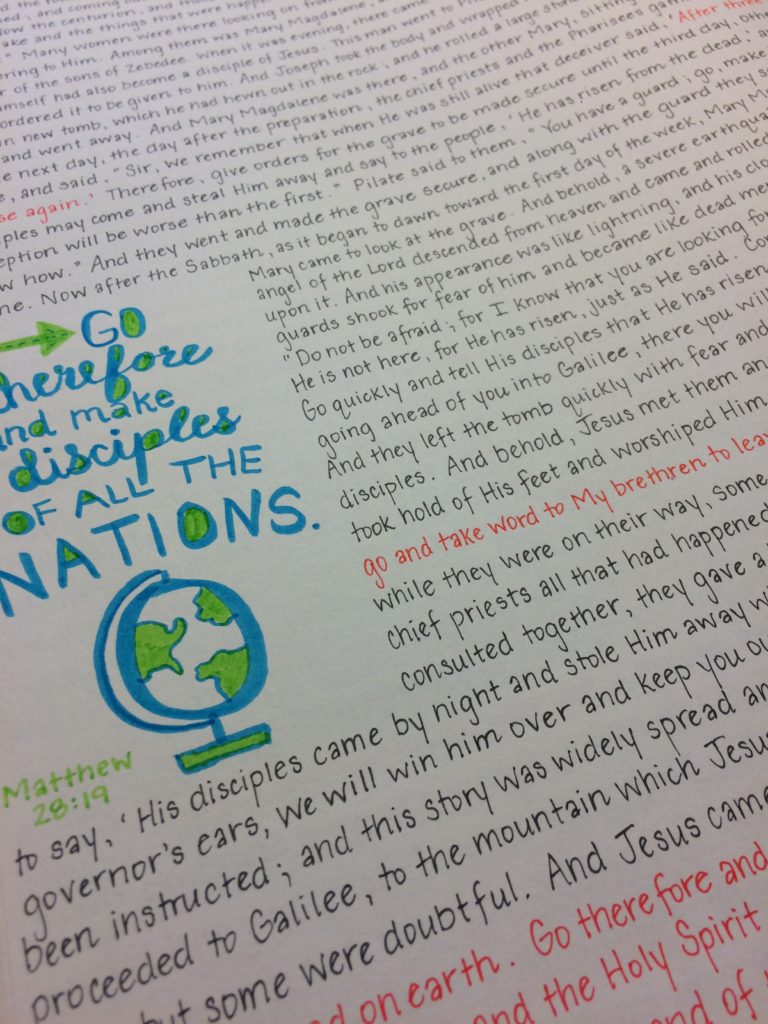 Now the centurion, and those
ake and the things that were happen
." Many women were there looking on from
ering to Him. Among them was Mary Magdalene, and
r of the sons of Zebedee. When it was evening, there came
imself had also become a disciple of Jesus. This man went to Pil
ordered it to be given to him. And Joseph took the body and wrapped
n new tomb, which he had hewn out in the rock; and he rolled a large stone
and went away. And Mary Magdalene was there, and the other Mary, sitting
e next day, the day after the preparation, the chief priests and the Pharisees ga
e, and said, "Sir, we remember that when He was still alive that deceiver said, 'After three
se again.' Therefore, give orders for the grave to be made secure until the third day, oth
iples may come and steal Him away and say to the people, 'He has risen from the dead; a
eption will be worse than the first." Pilate said to them, "You have a guard; go, make
w how." And they went and made the grave secure, and along with the guard they s
ne. Now after the Sabbath, as it began to dawn toward the first day of the week, Mary M
Mary came to look at the grave. And behold, a severe earthqua
angel of the Lord descended from heaven and came and rolled
upon it. And his appearance was like lightning, and his clo
guards shook for fear of him and became like dead men
"Do not be afraid; for I know that you are looking for
He is not here, for He has risen, just as He said. Co
Go quickly and tell His disciples that He has risen
going ahead of you into Galilee, there you will
And they left the tomb quickly with fear and
disciples. And behold, Jesus met them an
took hold of His feet and worshiped Him
go and take word to My brethren to lea
while they were on their way, some
chief priests all that had happened
consulted together, they gave a
GO
therefore
and make
disciples
OF ALL THE
NATIONS.
Matthew
28:19
to say, 'His disciples came by night and stole Him away w
governor's ears, we will win him over and keep you ou
been instructed; and this story was widely spread an
proceeded to Galilee, to the mountain which Jesu
but some were doubtful. And Jesus came
d on earth. Go therefore and
and the Holy Spirit
end of